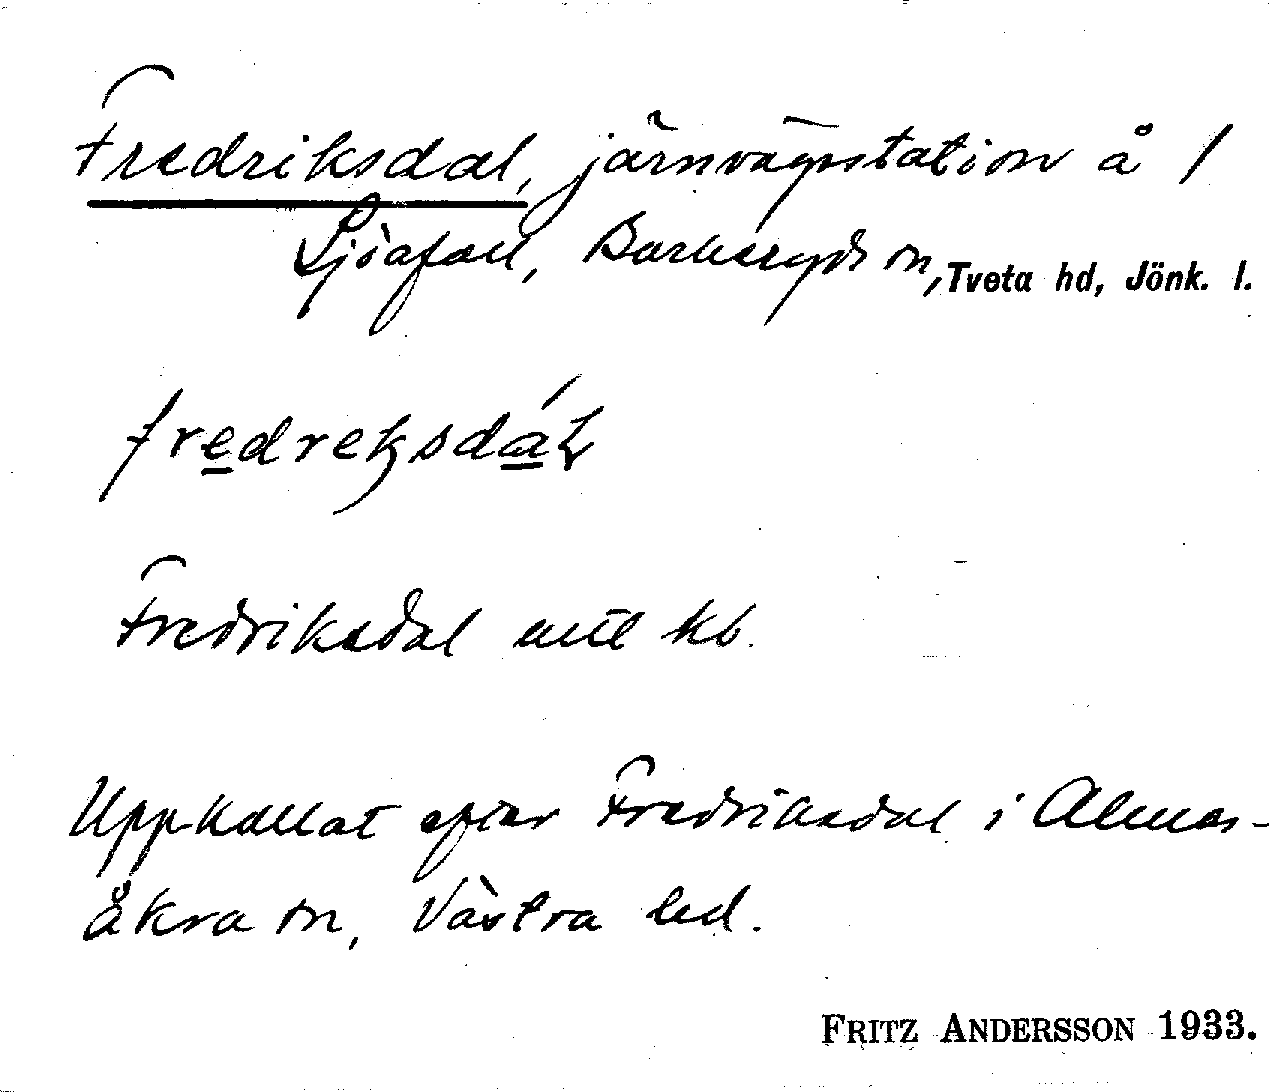 Fredriksdal, järnvägsstation å 1
Sjöafall, Barkeryds sn, Tveta hd, Jönk. l.
fredreksdál
Fredriksdal uttl kb.
Uppkallat efter Fredriksdal i Almes-
åkra sn, Västra hd.
FRITZ ANDERSSON 1933.